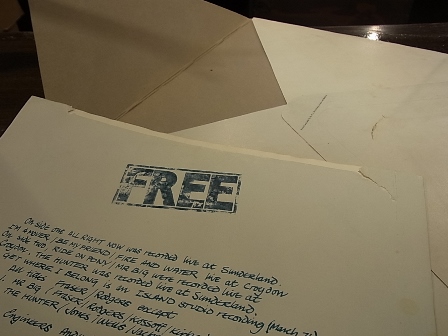 FREE
On side one ALL RIGHT NOW was recorded live at Sunderland.
I'M A MOVER / BE MY FRIEND / FIRE AND WATER live at Croydon
On side two, RIDE ON PONY / MR BIG were recorded live at
Croydon. THE HUNTER was recorded live at Sunderland.
GET WHERE I BELONG is an ISLAND STUDIO recording (March 71)
All titles Fraser/Rodgers except
1. MR BIG / Fraser/Rodgers/Kossoff/Kirke
THE HUNTER / Jones/Wells
Engineers Andy